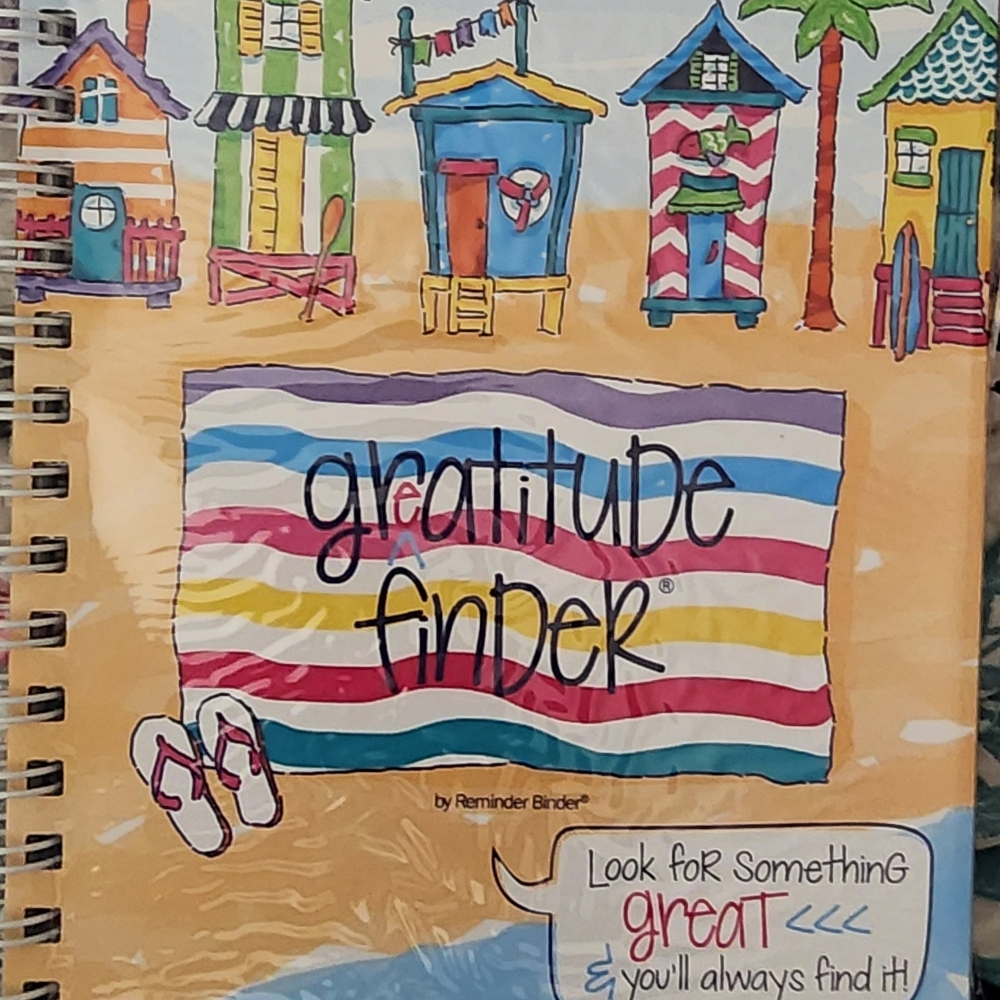 greatitude
finder®
by Reminder Binder®
Look for something
great <<<
& you'll always find it!